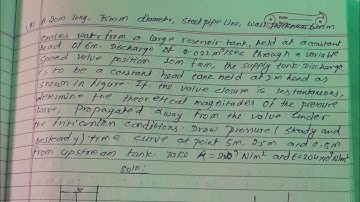 A 20m long, 75mm diameter, steel pipe line, wall thickness 6mm
carries water from a large reservoir tank, held at a constant
head of 6m. Discharge of 0.022 m³/sec through a variable
speed valve position 30m from, the supply tank. Discharge
is to be a constant head tank held at 3m head as
shown in figure. If the valve closure is instantaneous,
determine the theoretical magnitudes of the pressure
wave, propagated away from the valve under
the conditions. Draw pressure (steady and
unsteady) time curve at point 5m, 25m and 0.5m
from upstream tank. Take N/m² and E=204x10⁹ N/m²
soln: